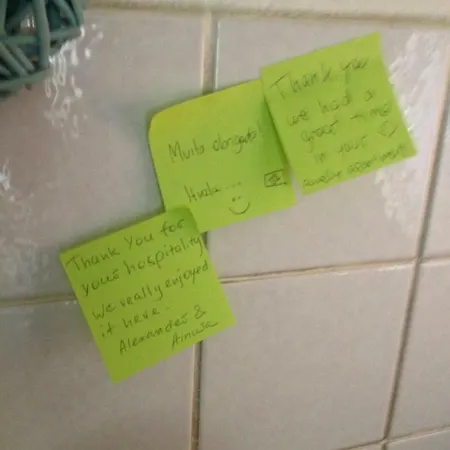 Muito obrigato!
Hvala...
Thank you
we had a
great time
in your
lovely apartment!
Thank You for
your hospitality
We really enjoyed
it here.
Alexander &